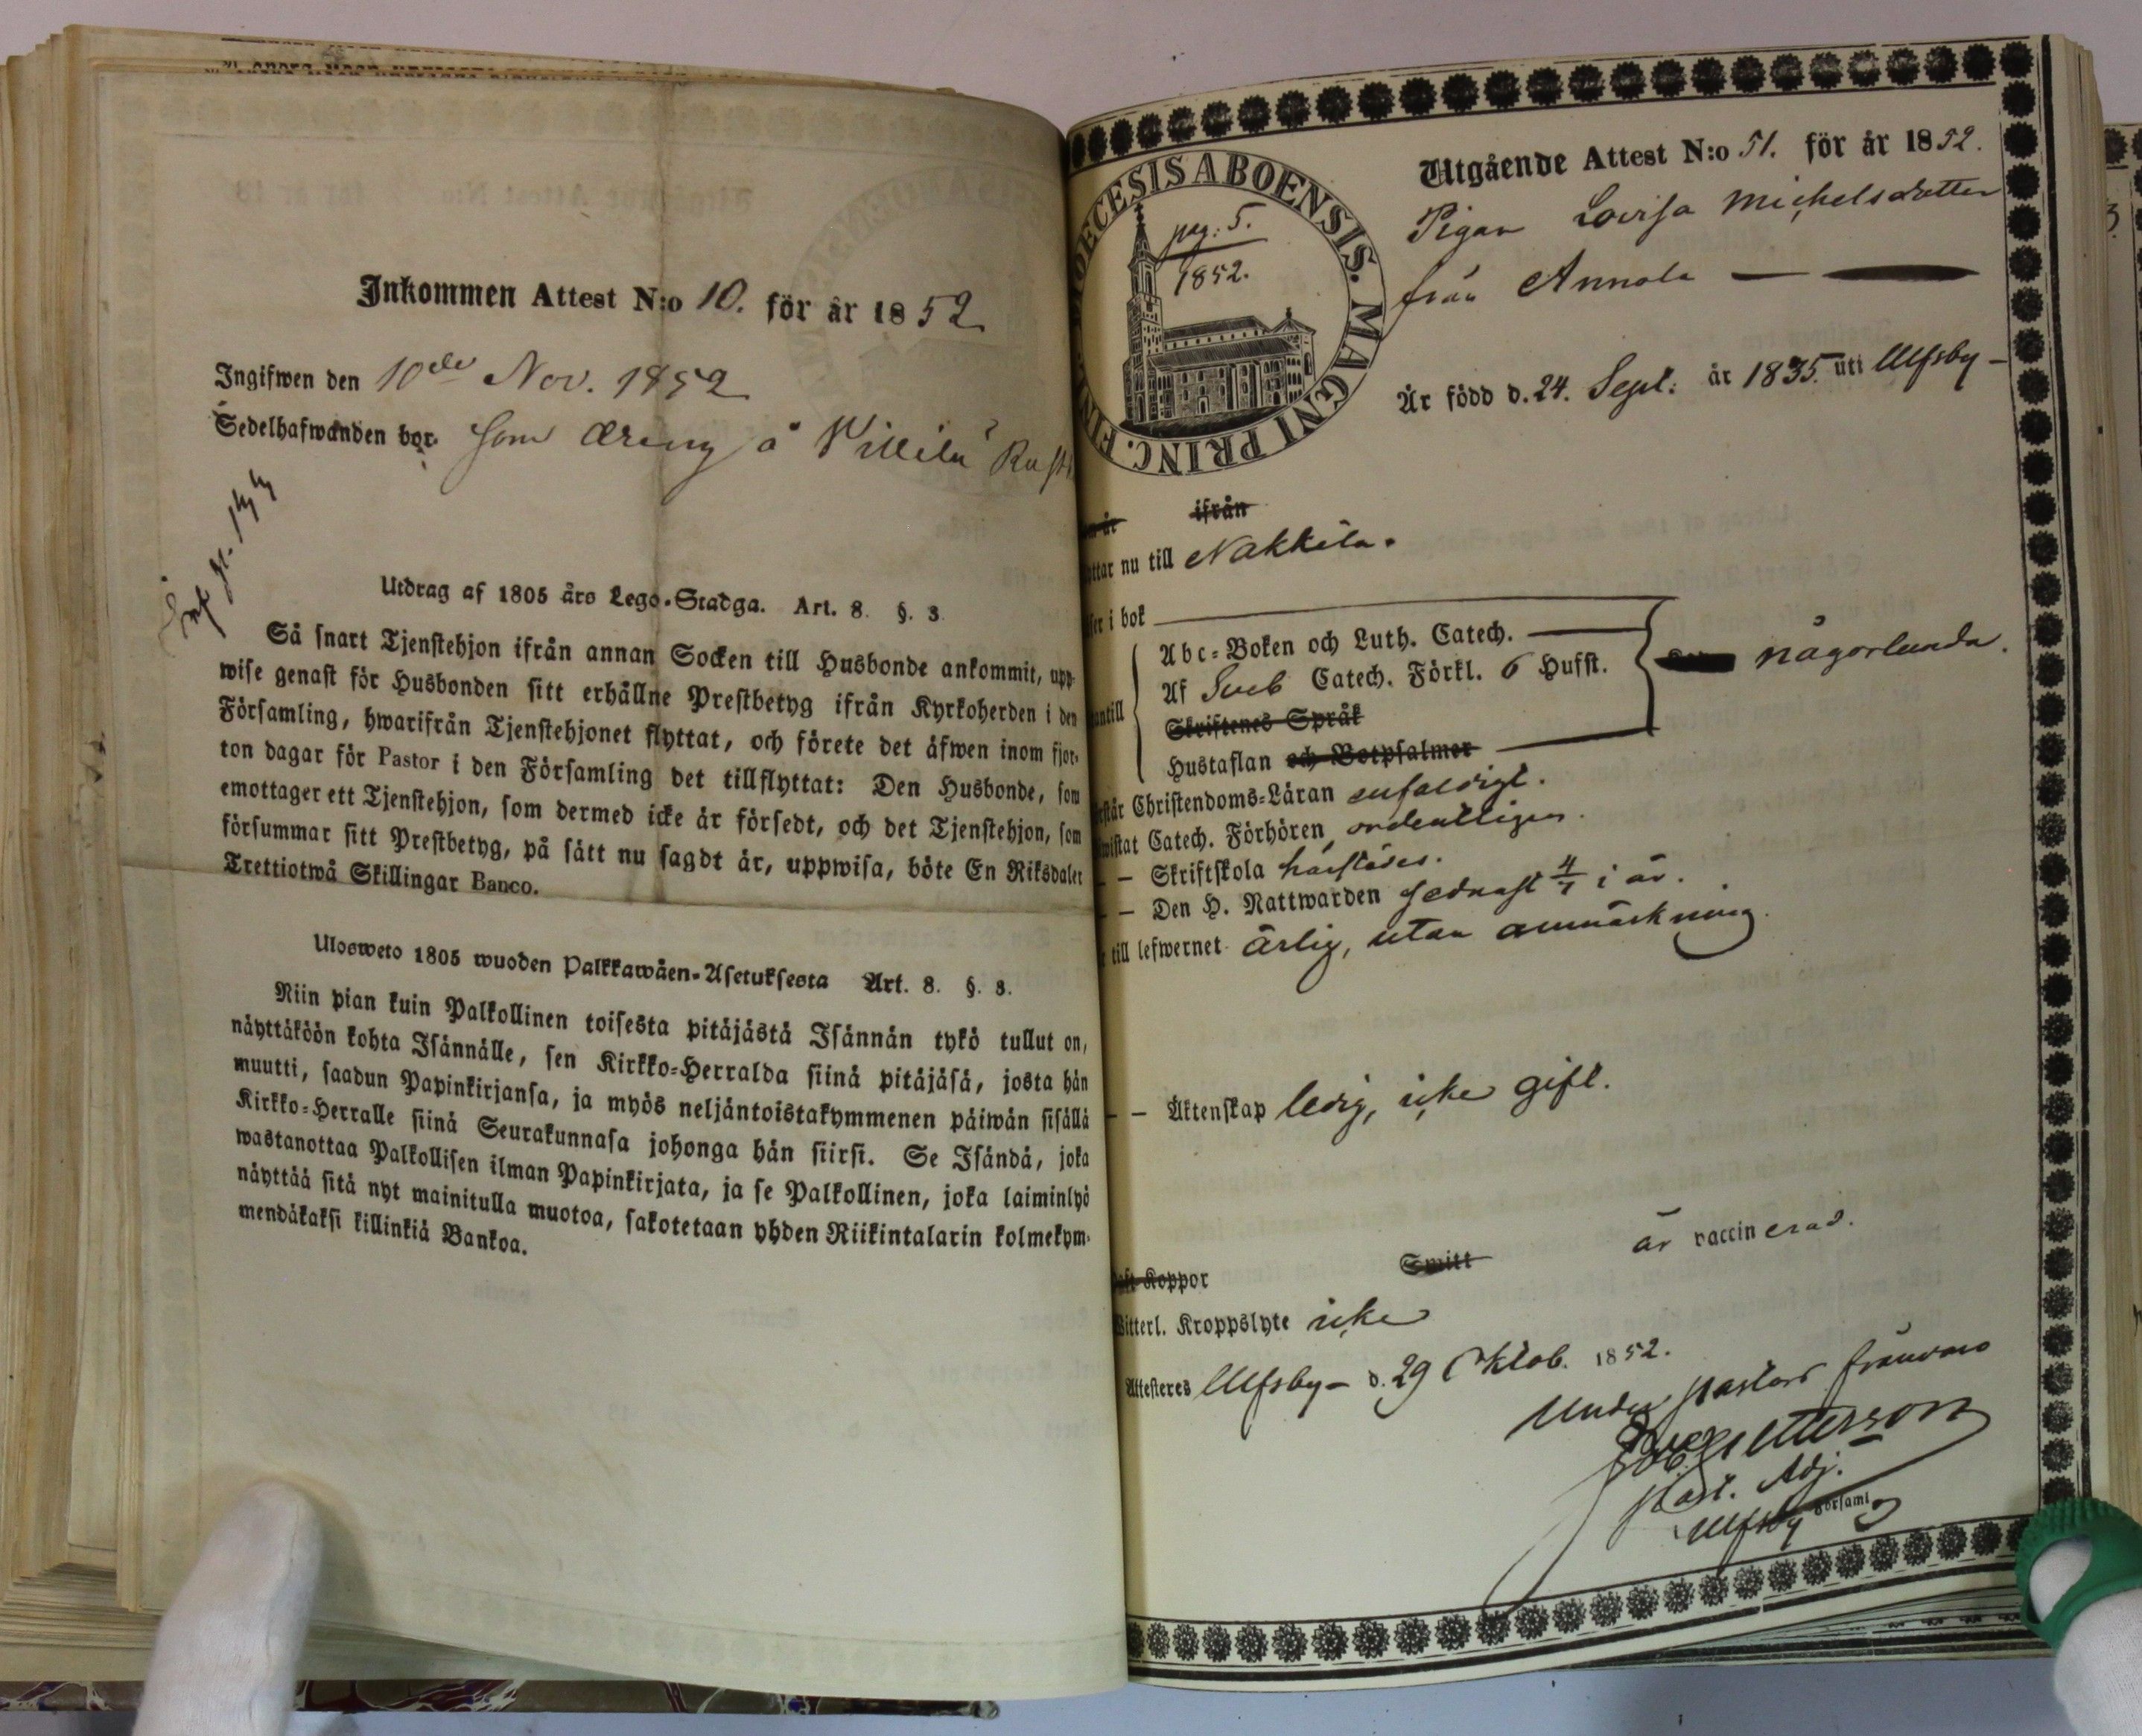 Inkommen Attest N:o 10. för år 1852
Ingifwen den 10de Nov. 1852
Sedelhafwanden bor som dreng å Villilä
Utdrag af 1805 års Lego-Stadga. Art. 8. §. 3.
Så snart Tjenstehjon ifrån annan Socken till Husbonde ankommit, upp-
wise genast för Husbonden sitt erhållne Prestbetyg ifrån Kyrkoherden i den
Församling, hwarifrån Tjenstehjonet flyttat, och förete det äfwen inom fjor-
ton dagar för Pastor i den Församling det tillflyttat: Den Husbonde, som
emottager ett Tjenstehjon, som dermed icke är försedt, och det Tjenstehjon, som
försummar sitt Prestbetyg, på sätt nu sagdt är, uppwisa, böte En Riksdaler
Trettiotwå Skillingar Banco.
Ulosweto 1805 wuoden Palkkawäen-Asetuksesta Art. 8. §. 3.
Niin pian kuin Palkollinen toisesta pitäjästä Isännän tykö tullut on,
näyttäköön kohta Isännälle, sen Kirkko-Herralda siinä pitäjäsä, josta hän
muutti, saadun Papinkirjansa, ja myös neljäntoistakymmenen päiwän sisällä
Kirkko-Herralle siinä Seurakunnasa johonga hän siirsi. Se Isändä, joka
wastanottaa Palkollisen ilman Papinkirjata, ja se Palkollinen, joka laiminlyö
näyttää sitä nyt mainitulla muotoa, sakotetaan yhden Riikintalarin kolmekym-
mendäkaksi killinkiä Bankoa.
DIOECESIS ABOENSIS. MAGNI PRINC. FINL.
pag: 5.
1852.
Utgående Attest N:o 51. för år 1852.
Pigan Lovisa Michelsdotter
från Annola
Är född d. 24. Sept. år 1835. uti Ulfsby
ifrån
nu till Nakkila.
i bok
Abc-Boken och Luth. Catech.
Af Sveb Catech. Förkl. 6 Hufst. någorlunda.
Skriftenes Språk
Hustaflan och Botpsalmer
Christendoms-Läran enfaldigt.
Catech. Förhören ordentligen.
— Skriftskola
— Den H. Nattwarden sednast 4/7 i år.
till lefwernet ärlig, utan anmärkning.
— — Äktenskap ledig, icke gift.
Koppor Smitt är vaccinerad.
Witterl. Kroppslyte icke
Attesteres Ulfsby d. 29 Oktob. 1852.
Under pastors frånvaro
Petterson
past. Adj.
Ulfsby Församl